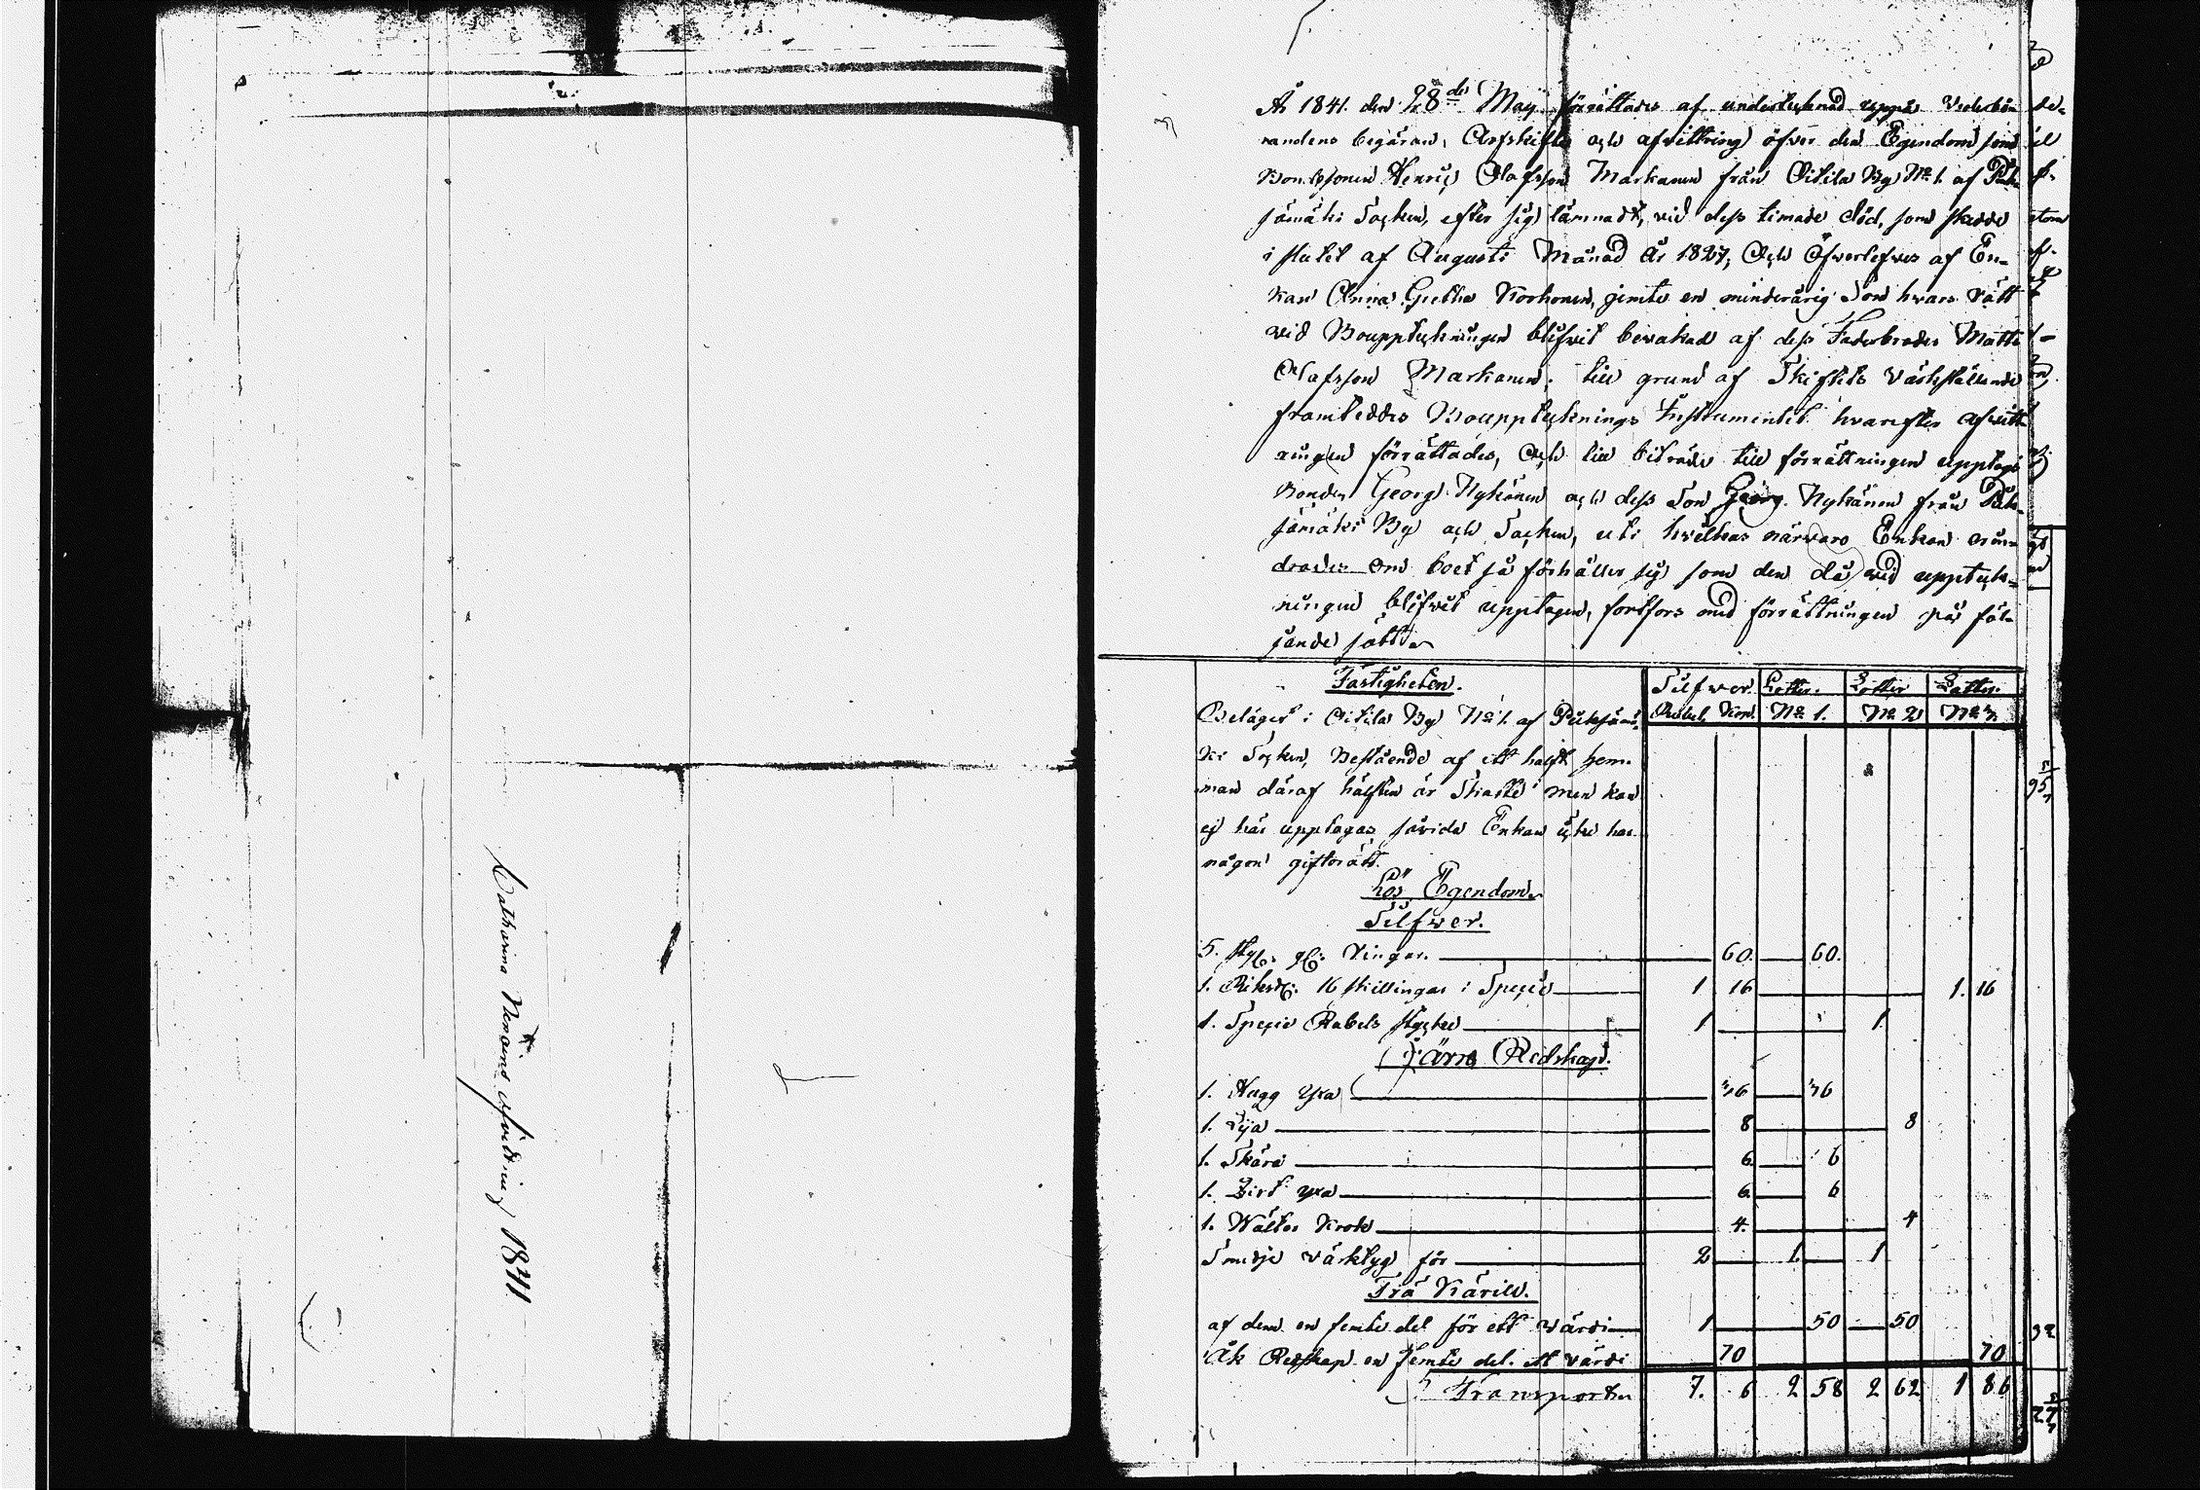 Catharina Neno[i]s afvittring 1841
År 1841. den 28de May förrättades af undertecknad uppå vederbö-
randens begäran, Arfskifte och afvittring öfver den Egendom som
Bondesonen Henric Olafsson Markanen från Oitila By No 1. af Piek-
sämäki Socken, efter sig lämnadt, vid dess timade död, som skedde
i slutet af Augusti Månad År 1827, Och Öfverlefves af En-
kan Anna Gretha Korhonen, jemte en minderårig Son hvars rätt
vid Bouppteckningen blifvit bevakad af dess Faderbroder Matts
Olafsson Markanen; till grund af Skiftets värkställande
framteddes Boupptecknings Instrumentet hvarefter afvitt-
ringen förrättades, Och till biträde till förrättningen upptogs
Bonden Georg Nykänen och dess Son Georg Nykänen från Piek-
sämäki By och Socken, uti hvilkas närvaro Enkan erin-
drades om boet så förhåller sig som den då vid uppteck-
ningen blifvit upptagen, fortfors med förrättningen på föl-
jande sätt
Fastigheten. Silfver. Lotten. Lotten Lotten.
Belägit i Oitila By No 1. af Pieksämä- Rubel. Kop. No 1. No 2 No 3.
ki Socken, Bestående af ett halft hem-
man däraf hälften är Skatte men kan
ej här upptagas såvida Enkan icke har
någon giftorätt.
Lös Egendom.
Silfver.
5. st: Ringar. 60. 60.
1. Riksd: 16 skillingar i Specie 1 16 1. 16
1. Specie Rubels stycke 1 1.
Järn Redskap.
1. Hugg yxa 36 36
1. Lija 8 8
1. Skära 6 6
1. yxa 6 6
1. Krok 4. 4
Smedje värktyg för 2 1. 1
Trä Kärill.
af dem en femte del för ett värde 1 50 50
Åk Redskap en femte del. ett värde 70 70
Transporten 7. 6 2 58 2 62 1 86